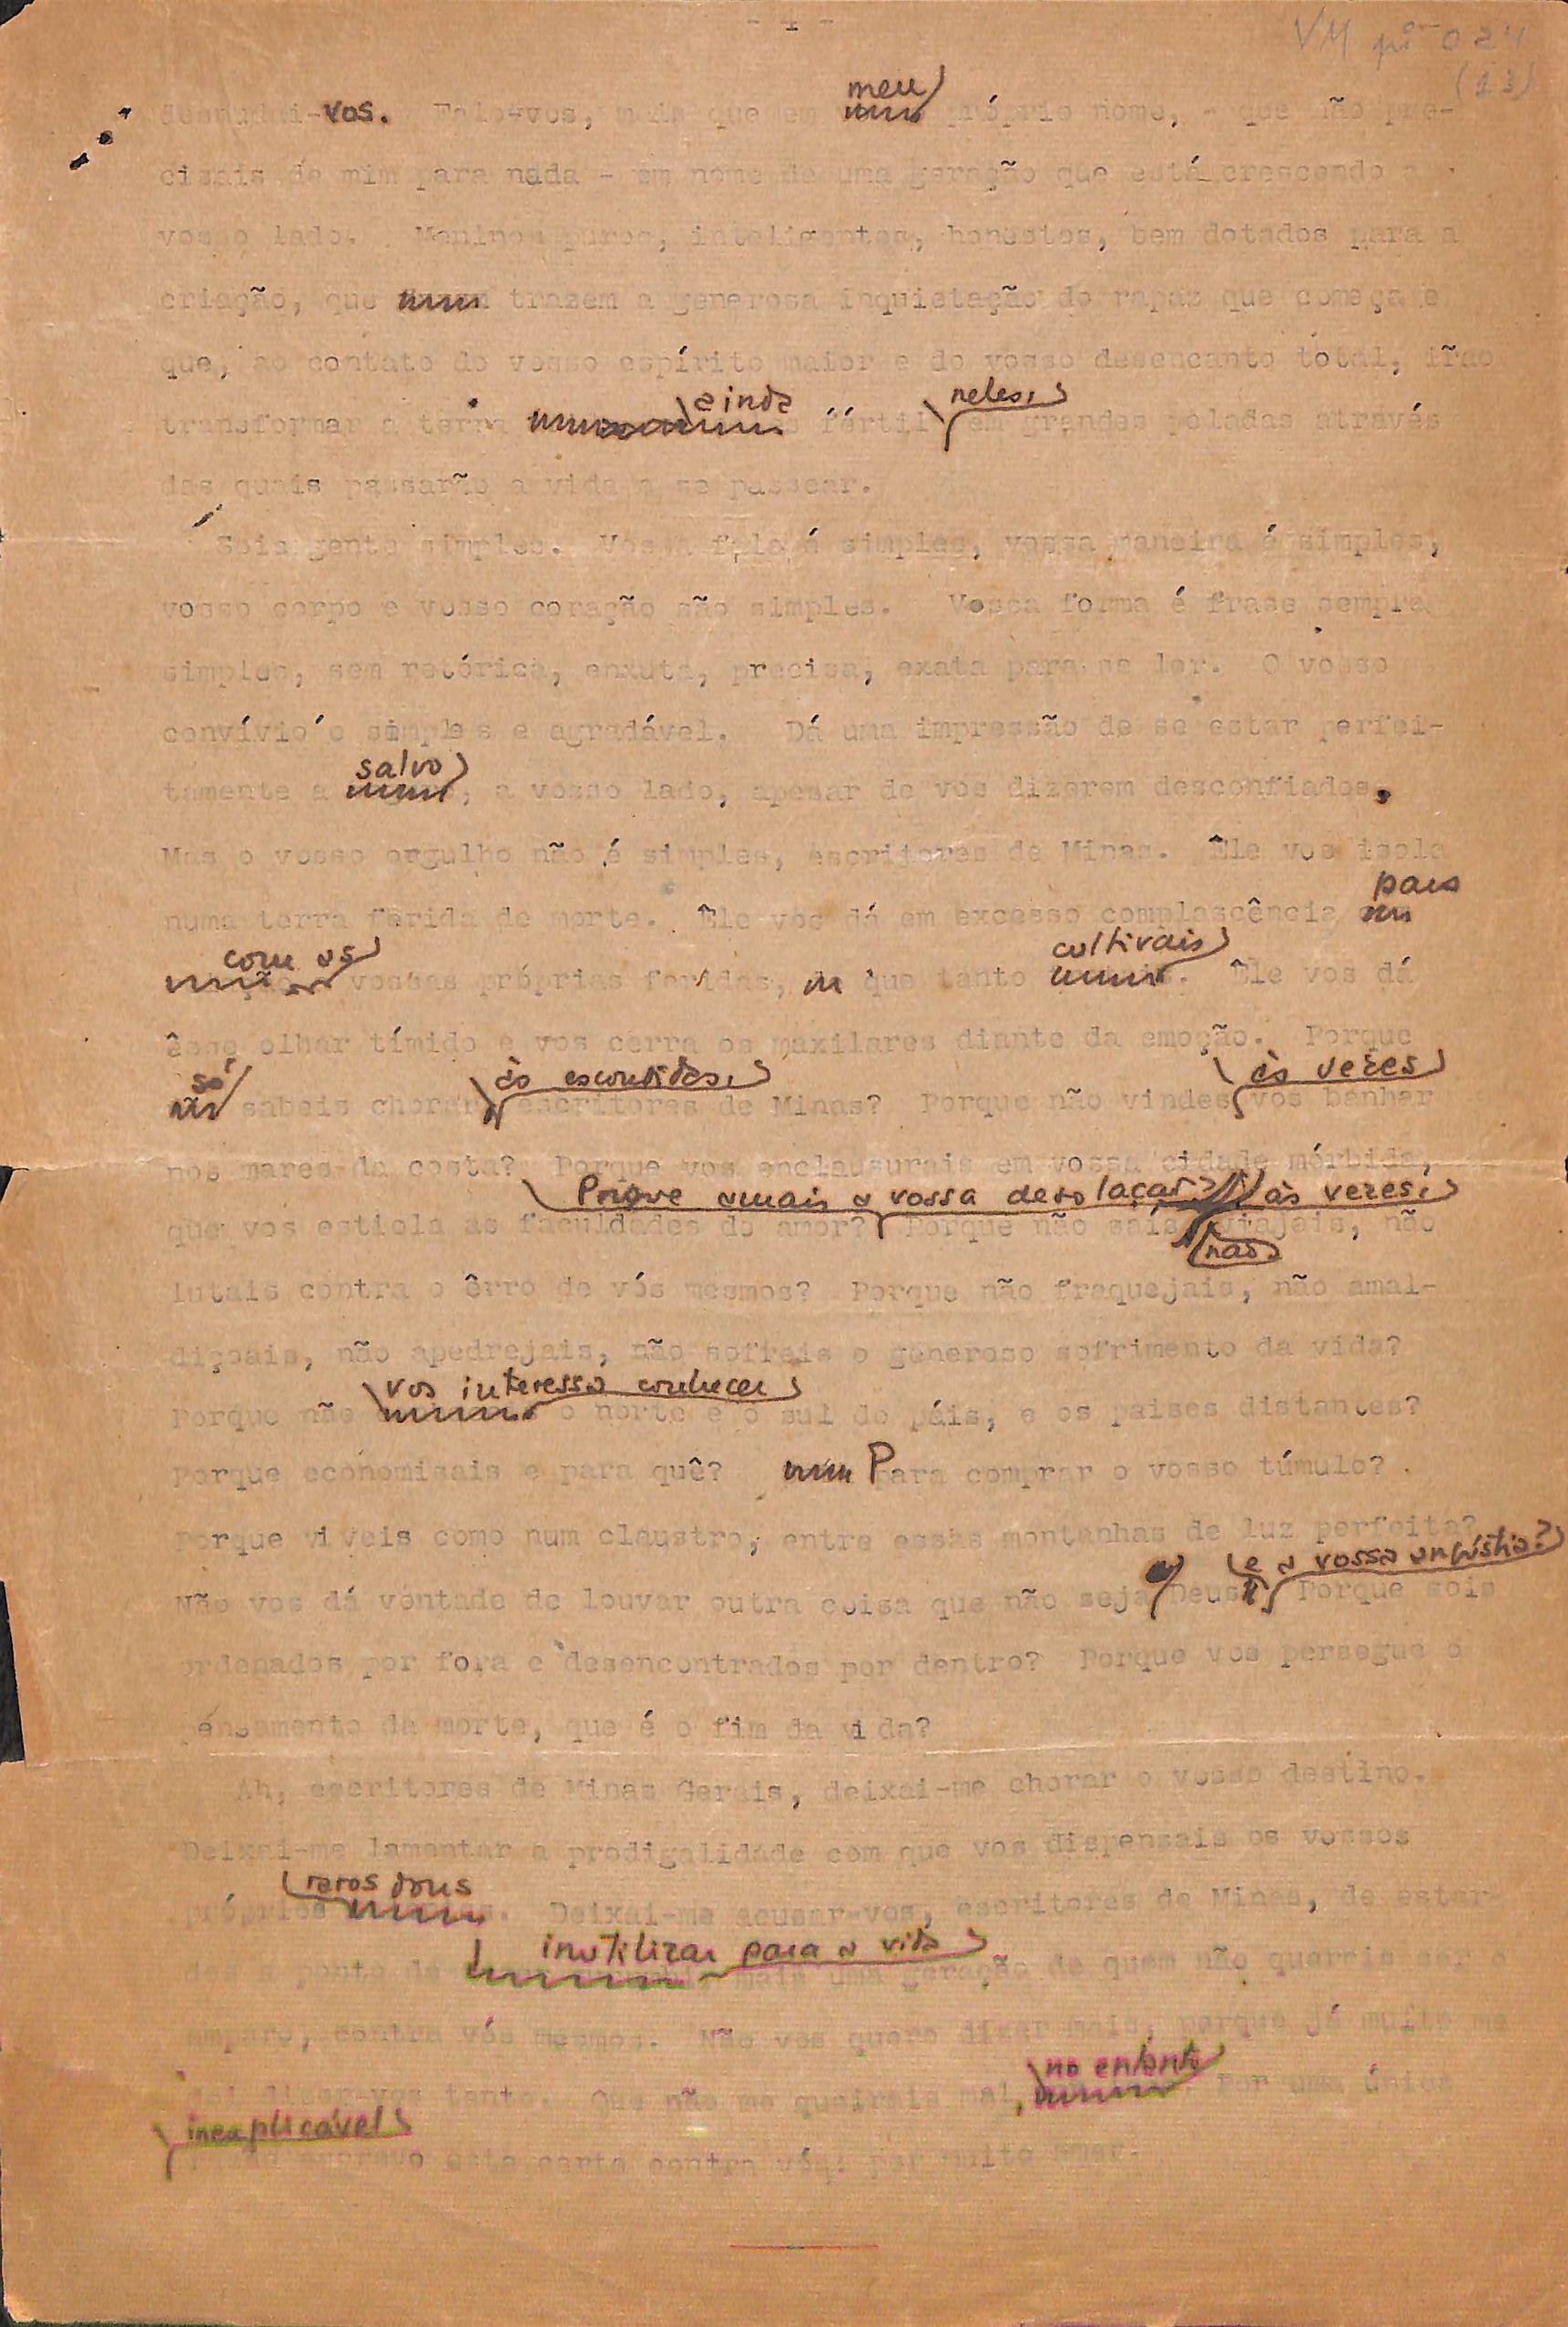 - 4 -
VM pi - 024
(13)
meu
desnudai-vos. Falo-vos, mais que em próprio nome, - que não pre-
cisais de mim para nada - em nome de uma geração que está crescendo a
vosso lado. Meninos puros, inteligentes, honestos, bem dotados para a
criação, que trazem a generosa inquietação do rapaz que começa e
que, ao contato do vosso espírito maior e do vosso desencanto total, irão
ainda neles,
transformar a terra fértil em grandes peladas através
das quais passarão a vida a se passear.
Sois gente simples. Vossa fala é simples, vossa maneira é simples,
vosso corpo e vosso coração são simples. Vossa forma é frase sempre
simples, sem retórica, enxuta, precisa, exata para se ler. O vosso
convívio é simples e agradável. Dá uma impressão de se estar perfei-
salvo
tamente a , a vosso lado, apesar de vos dizerem desconfiados.
Mas o vosso orgulho não é simples, escritores de Minas. Êle vos isola
para
numa terra ferida de morte. Êle vos dá em excesso complascência
com as cultivais
vossas próprias feridas, que tanto . Êle vos dá
êsse olhar tímido e vos cerra os maxilares diante da emoção. Porque
só às escondidas, às vezes
sabeis chorar escritores de Minas? Porque não vindes vos banhar
nos mares da costa? Porque vos enclausurais em vossa cidade mórbida,
Porque amais a vossa desolação? às vezes,
que vos estiola as faculdades do amor? Porque não sais, viajais, não
não
lutais contra o êrro de vós mesmos? Porque não fraquejais, não amal-
diçoais, não apedrejais, não sofreis o generoso sofrimento da vida?
vos interessa conhecer
Porque não o norte e o sul do páis, e os paises distantes?
Porque economisais e para quê? Para comprar o vosso túmulo?
Porque viveis como num claustro, entre essas montanhas de luz perfeita?
e a vossa angústia?
Não vos dá vontade de louvar outra coisa que não seja Deus Porque sois
ordenados por fora e desencontrados por dentro? Porque vos persegue o
pensamento da morte, que é o fim da vida?
Ah, escritores de Minas Gerais, deixai-me chorar o vosso destino.
Deixai-me lamentar a prodigalidade com que vos dispensais os vossos
raros dons
próprios . Deixai-me acusar-vos, escritores de Minas, de estar-
inutilizar para a vida
des a ponto de mais uma geração de quem não quereis ser o
amparo, contra vós mesmos. Não vos quero dizer mais, porque já muito me
no entanto
doi dizer-vos tanto. Que não me queirais mal, . Por uma única
inexplicável
razão escrevo esta carta contra vós: por muito amar.